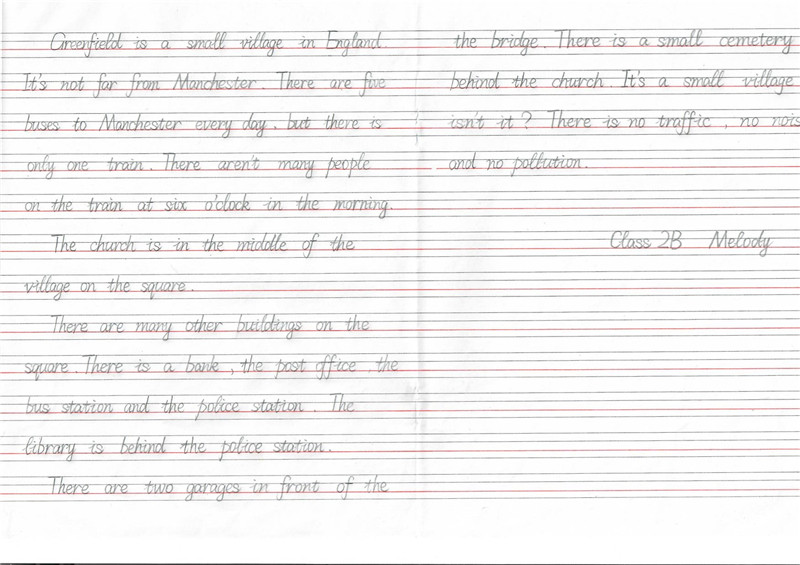 Greenfield is a small village in England.
It's not far from Manchester. There are five
buses to Manchester every day, but there is
only one train. There aren't many people
on the train at six o'clock in the morning.
The church is in the middle of the
village on the square.
There are many other buildings on the
square. There is a bank, the post office, the
bus station and the police station. The
library is behind the police station.
There are two garages in front of the
the bridge. There is a small cemetery
behind the church. It's a small village
isn't it? There is no traffic, no nois
and no pollution.
Class 2B Melody